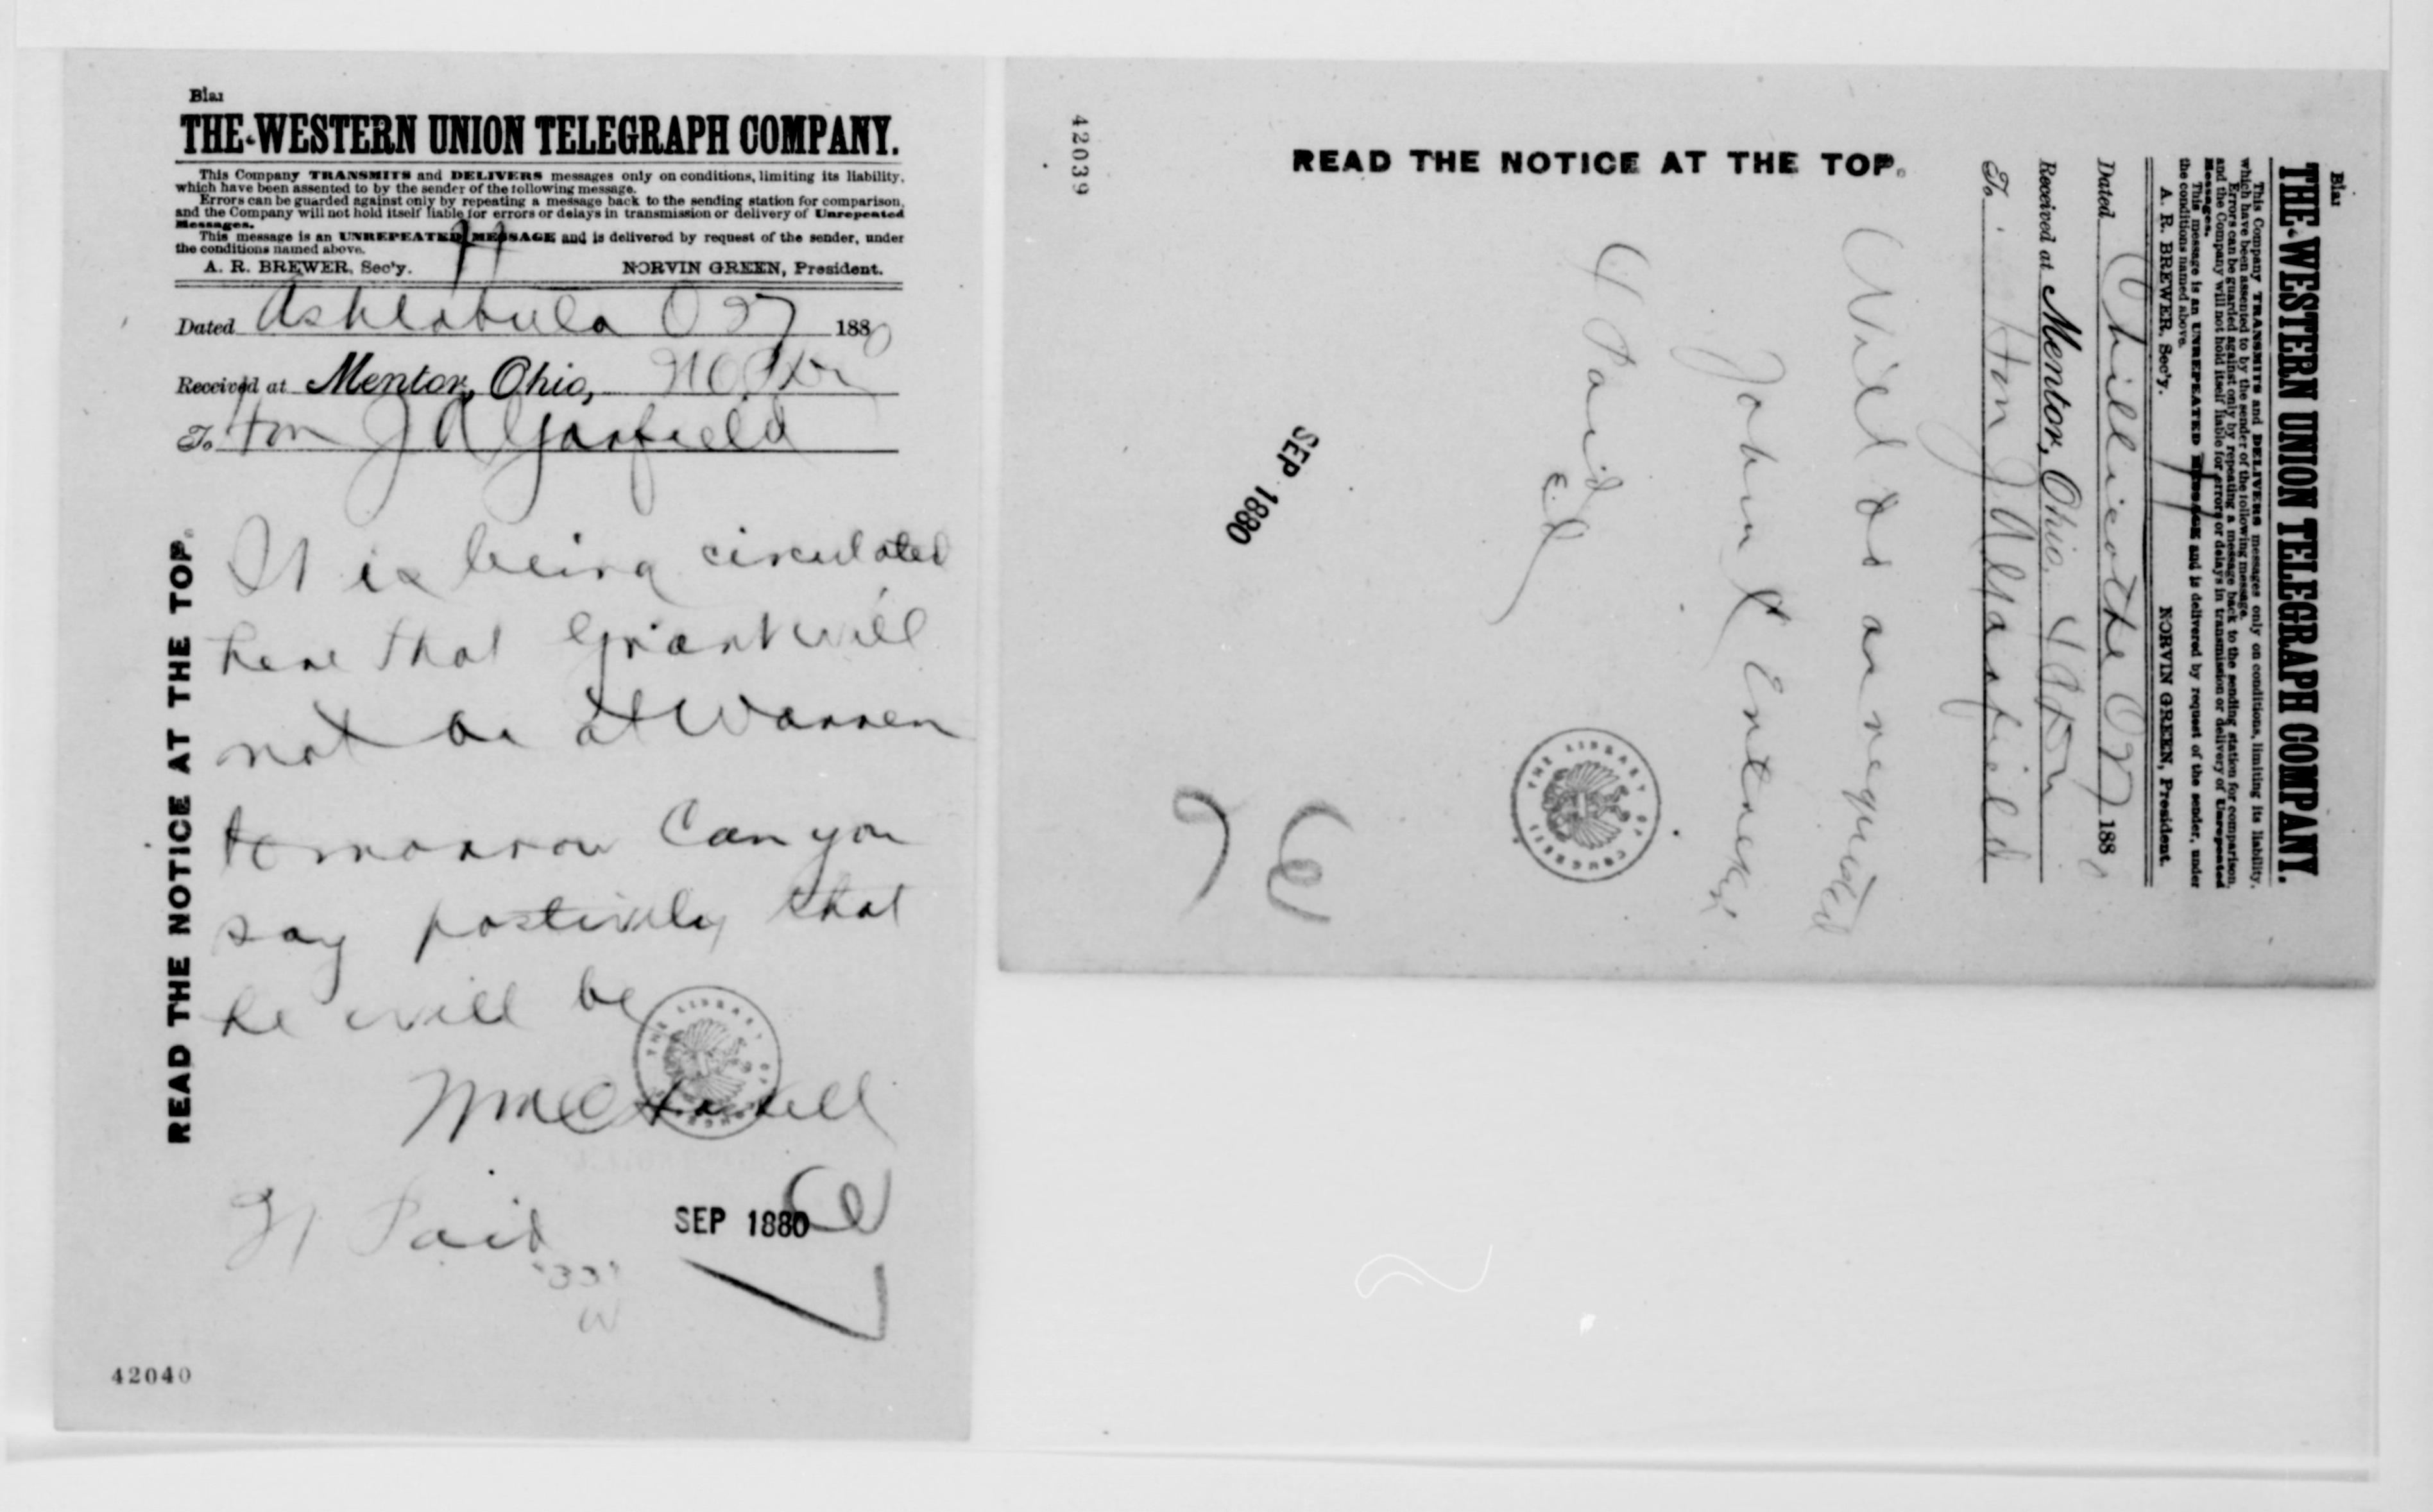 Blan
THE WESTERN UNION TELEGRAPH COMPANY.
This Company TRANSMITS and DELIVERS messages only on conditions, limiting its liability,
which have been assented to by the sender of the following message.
Errors can be guarded against only by repeating a message back to the sending station for comparison,
and the Company will not hold itself liable for errors or delays in transmission or delivery of Unrepeated
Messages.
This message is an UNREPEATED MESSAGE and is delivered by request of the sender, under
the conditions named above.
A. R. BREWER, Sec'y. NORVIN GREEN, President.
Dated Ashtabula O 27 1880
Received at Mentor, Ohio,
To Hon J A Garfield
It is being circulated
here that Grant will
not be at Warren
tomorrow Can you
say postively that
he will be
Wm C Howell
21 Paid
"33"
W
SEP 1880
READ THE NOTICE AT THE TOP.
THE LIBRARY OF CONGRESS
42040
42039
Blan
THE WESTERN UNION TELEGRAPH COMPANY.
This Company TRANSMITS and DELIVERS messages only on conditions, limiting its liability,
which have been assented to by the sender of the following message.
Errors can be guarded against only by repeating a message back to the sending station for comparison,
and the Company will not hold itself liable for errors or delays in transmission or delivery of Unrepeated
Messages.
This message is an UNREPEATED MESSAGE and is delivered by request of the sender, under
the conditions named above.
A. R. BREWER, Sec'y. NORVIN GREEN, President.
Dated Chillicothe O 27 1880
Received at Mentor, Ohio,
To Hon J A Garfield
Will do as requested
John Entrekin
4 Paid
SEP 1880
READ THE NOTICE AT THE TOP.
THE LIBRARY OF CONGRESS